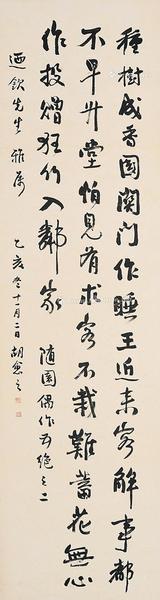 種樹成香國關門作睡王近來客解事都
不早升堂怕見有求客不栽難蓄花無心
作投贈狂竹入鄰家 隨園偶作五絕之二
迺欽先生雅屬
乙亥冬十一月二日胡愈之